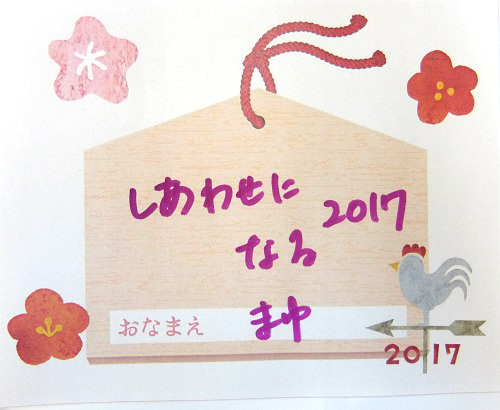 しあわせに
2017
なる
おなまえ
まゆ
2017